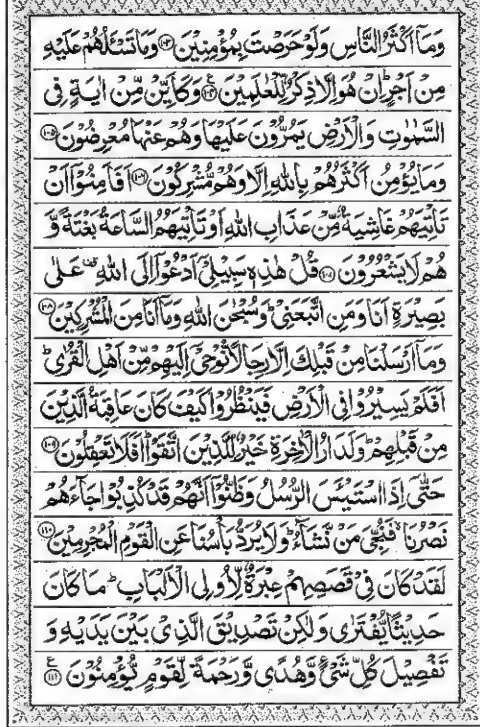 وَمَاۤ اَكْثَرُ النَّاسِ وَلَوْ حَرَصْتَ بِمُؤْمِنِیْنَ ۝۱۰۳ وَمَا تَسْـَٔلُهُمْ عَلَیْهِ
مِنْ اَجْرٍ ؕ اِنْ هُوَ اِلَّا ذِكْرٌ لِّلْعٰلَمِیْنَ ۝۱۰۴ ع وَكَاَیِّنْ مِّنْ اٰیَةٍ فِی
السَّمٰوٰتِ وَالْاَرْضِ یَمُرُّوْنَ عَلَیْهَا وَهُمْ عَنْهَا مُعْرِضُوْنَ ۝۱۰۵
وَمَا یُؤْمِنُ اَكْثَرُهُمْ بِاللّٰهِ اِلَّا وَهُمْ مُّشْرِكُوْنَ ۝۱۰۶ اَفَاَمِنُوْۤا اَنْ
تَاْتِیَهُمْ غَاشِیَةٌ مِّنْ عَذَابِ اللّٰهِ اَوْ تَاْتِیَهُمُ السَّاعَةُ بَغْتَةً وَّ
هُمْ لَا یَشْعُرُوْنَ ۝۱۰۷ قُلْ هٰذِهٖ سَبِیْلِیْۤ اَدْعُوْۤا اِلَی اللّٰهِ ؔ عَلٰی
بَصِیْرَةٍ اَنَا وَمَنِ اتَّبَعَنِیْ ؕ وَسُبْحٰنَ اللّٰهِ وَمَاۤ اَنَا مِنَ الْمُشْرِكِیْنَ ۝۱۰۸
وَمَاۤ اَرْسَلْنَا مِنْ قَبْلِكَ اِلَّا رِجَالًا نُّوْحِیْۤ اِلَیْهِمْ مِّنْ اَهْلِ الْقُرٰی ؕ
اَفَلَمْ یَسِیْرُوْا فِی الْاَرْضِ فَیَنْظُرُوْا كَیْفَ كَانَ عَاقِبَةُ الَّذِیْنَ
مِنْ قَبْلِهِمْ ؕ وَلَدَارُ الْاٰخِرَةِ خَیْرٌ لِّلَّذِیْنَ اتَّقَوْا ؕ اَفَلَا تَعْقِلُوْنَ ۝۱۰۹
حَتّٰۤی اِذَا اسْتَیْـَٔسَ الرُّسُلُ وَظَنُّوْۤا اَنَّهُمْ قَدْ كُذِبُوْا جَآءَهُمْ
نَصْرُنَا ۙ فَنُجِّیَ مَنْ نَّشَآءُ ؕ وَلَا یُرَدُّ بَاْسُنَا عَنِ الْقَوْمِ الْمُجْرِمِیْنَ ۝۱۱۰
لَقَدْ كَانَ فِیْ قَصَصِهِمْ عِبْرَةٌ لِّاُولِی الْاَلْبَابِ ؕ مَا كَانَ
حَدِیْثًا یُّفْتَرٰی وَلٰكِنْ تَصْدِیْقَ الَّذِیْ بَیْنَ یَدَیْهِ وَ
تَفْصِیْلَ كُلِّ شَیْءٍ وَّهُدًی وَّرَحْمَةً لِّقَوْمٍ یُّؤْمِنُوْنَ ۝۱۱۱ ع